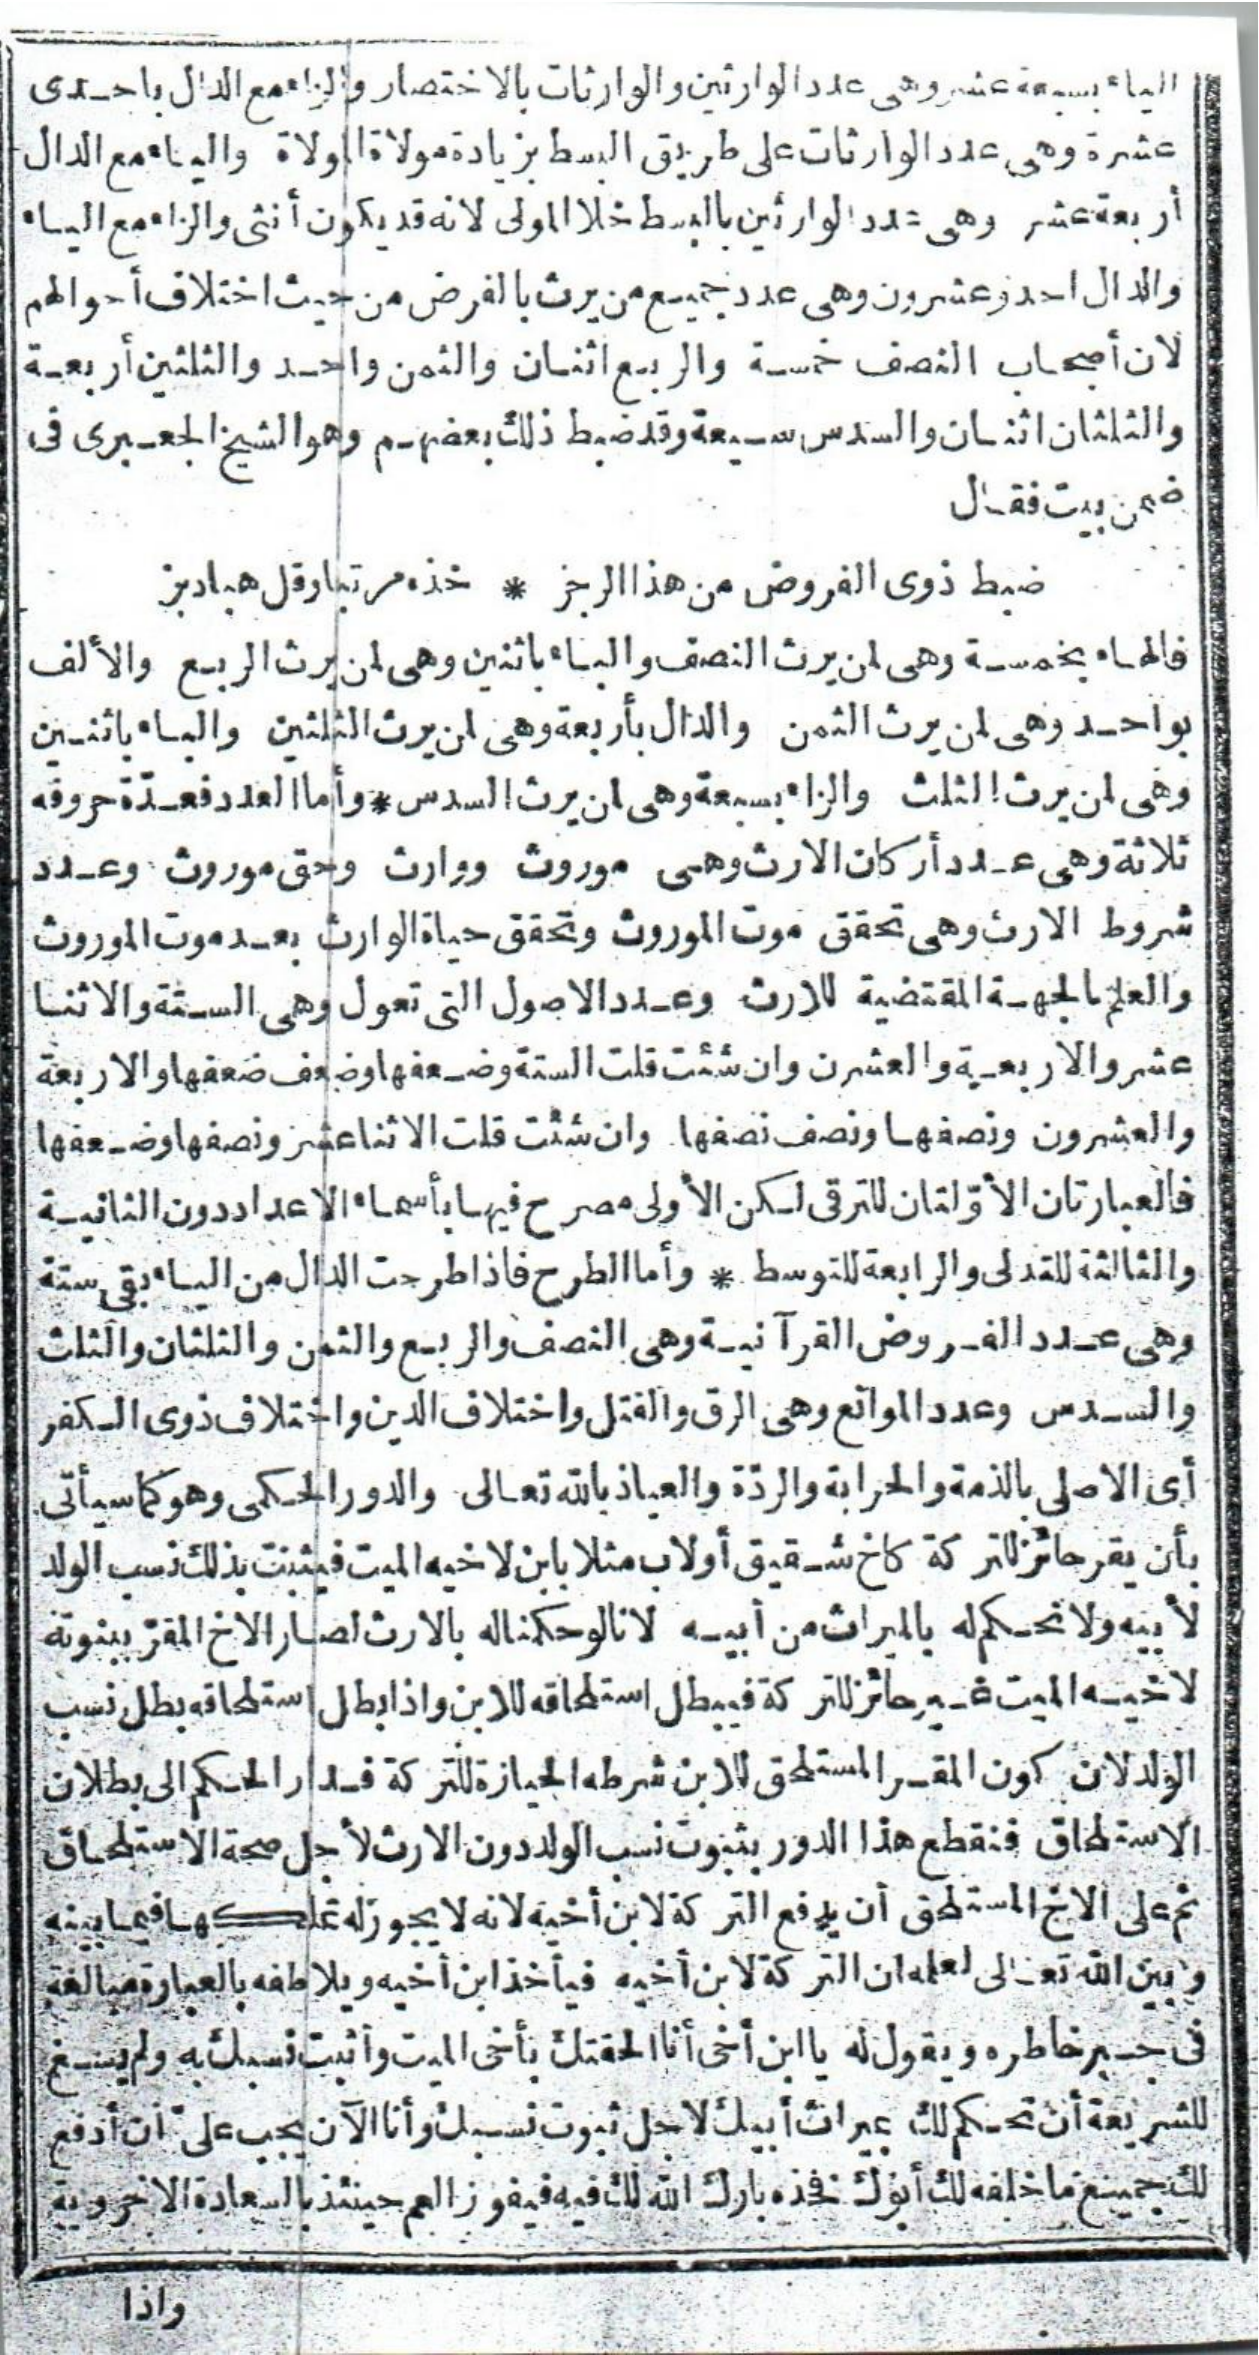 الياء بسبعة عشر وهى عدد الوارثين والوارثات بالاختصار والزاء مع الدال باحدى
عشرة وهى عدد الوارثات على طريق البسط بزيادة مولاة المولاة والياء مع الدال
أربعة عشر وهى عدد الوارثين بالبسط خلا المولى لانه قد يكون أنثى والزاء مع الياء
والدال احد وعشرون وهى عدد جميع من يرث بالفرض من حيث اختلاف أحوالهم
لان أصحاب النصف خمسة والربع اثنان والثمن واحد والثلثين أربعة
والثلثان اثنان والسدس سبعة وقد ضبط ذلك بعضهم وهو الشيخ الجعبرى فى
ضمن بيت فقال
ضبط ذوى الفروض من هذا الرجز * خذه مرتبا وقل هبادبز
فالهاء بخمسة وهى لمن يرث النصف والباء باثنين وهى لمن يرث الربع والألف
بواحد وهى لمن يرث الثمن والدال بأربعة وهى لمن يرث الثلثين والباء باثنين
وهى لمن يرث الثلث والزاء بسبعة وهى لمن يرث السدس * وأما العدد فعدّة حروفه
ثلاثة وهى عدد أركان الارث وهى موروث ووارث وحق موروث وعدد
شروط الارث وهى تحقق موت الموروث وتحقق حياة الوارث بعد موت الموروث
والعلم بالجهة المقتضية للارث وعدد الاصول التى تعول وهى الستة والاثنا
عشر والاربعة والعشرن وان شئت قلت الستة وضعفها وضعف ضعفها والاربعة
والعشرون ونصفها ونصف نصفها وان شئت قلت الاثنا عشر ونصفها وضعفها
فالعبارتان الأوّلتان للترقى لكن الأولى مصرح فيها بأسماء الاعداد دون الثانية
والثالثة للتدلى والرابعة للتوسط * وأما الطرح فاذا طرحت الدال من الياء بقى ستة
وهى عدد الفروض القرآنية وهى النصف والربع والثمن والثلثان والثلث
والسدس وعدد الموانع وهى الرق والقتل واختلاف الدين واختلاف ذوى الكفر
أى الاصلى بالذمة والحرابة والردّة والعياذ بالله تعالى والدور الحكمى وهو كما سيأتى
بأن يقر حائز للتركة كاخ شقيق أو لاب مثلا بابن لاخيه الميت فيثبت بذلك نسب الولد
لأبيه ولا نحكم له بالميراث من أبيه لانا لو حكمنا له بالارث لصار الاخ المقرّ ببنوته
لاخيه الميت غير حائز للتركة فيبطل استلحاقه للابن واذا بطل استلحاقه بطل نسب
الولد لان كون المقر المستلحق للابن شرطه الحيازة للتركة فدار الحكم الى بطلان
الاستلحاق فنقطع هذا الدور بثبوت نسب الولد دون الارث لأجل صحة الاستلحاق
ثم على الاخ المستلحق أن يدفع التركة لابن أخيه لانه لا يجوز له تملكها فيما بينه
وبين الله تعالى لعلمه ان التركة لابن أخيه فيأخذ ابن أخيه ويلاطفه بالعبارة مبالغة
فى جبر خاطره ويقول له يا ابن أخى أنا الحقتك بأخى الميت وأثبت نسبك به ولم يسغ
للشريعة أن تحكم لك بميراث أبيك لاجل ثبوت نسبك وأنا الآن يجب علىّ أن أدفع
لك جميع ما خلفه لك أبوك فخذه بارك الله لك فيه فيفوز العم حينئذ بالسعادة الاخروية
واذا